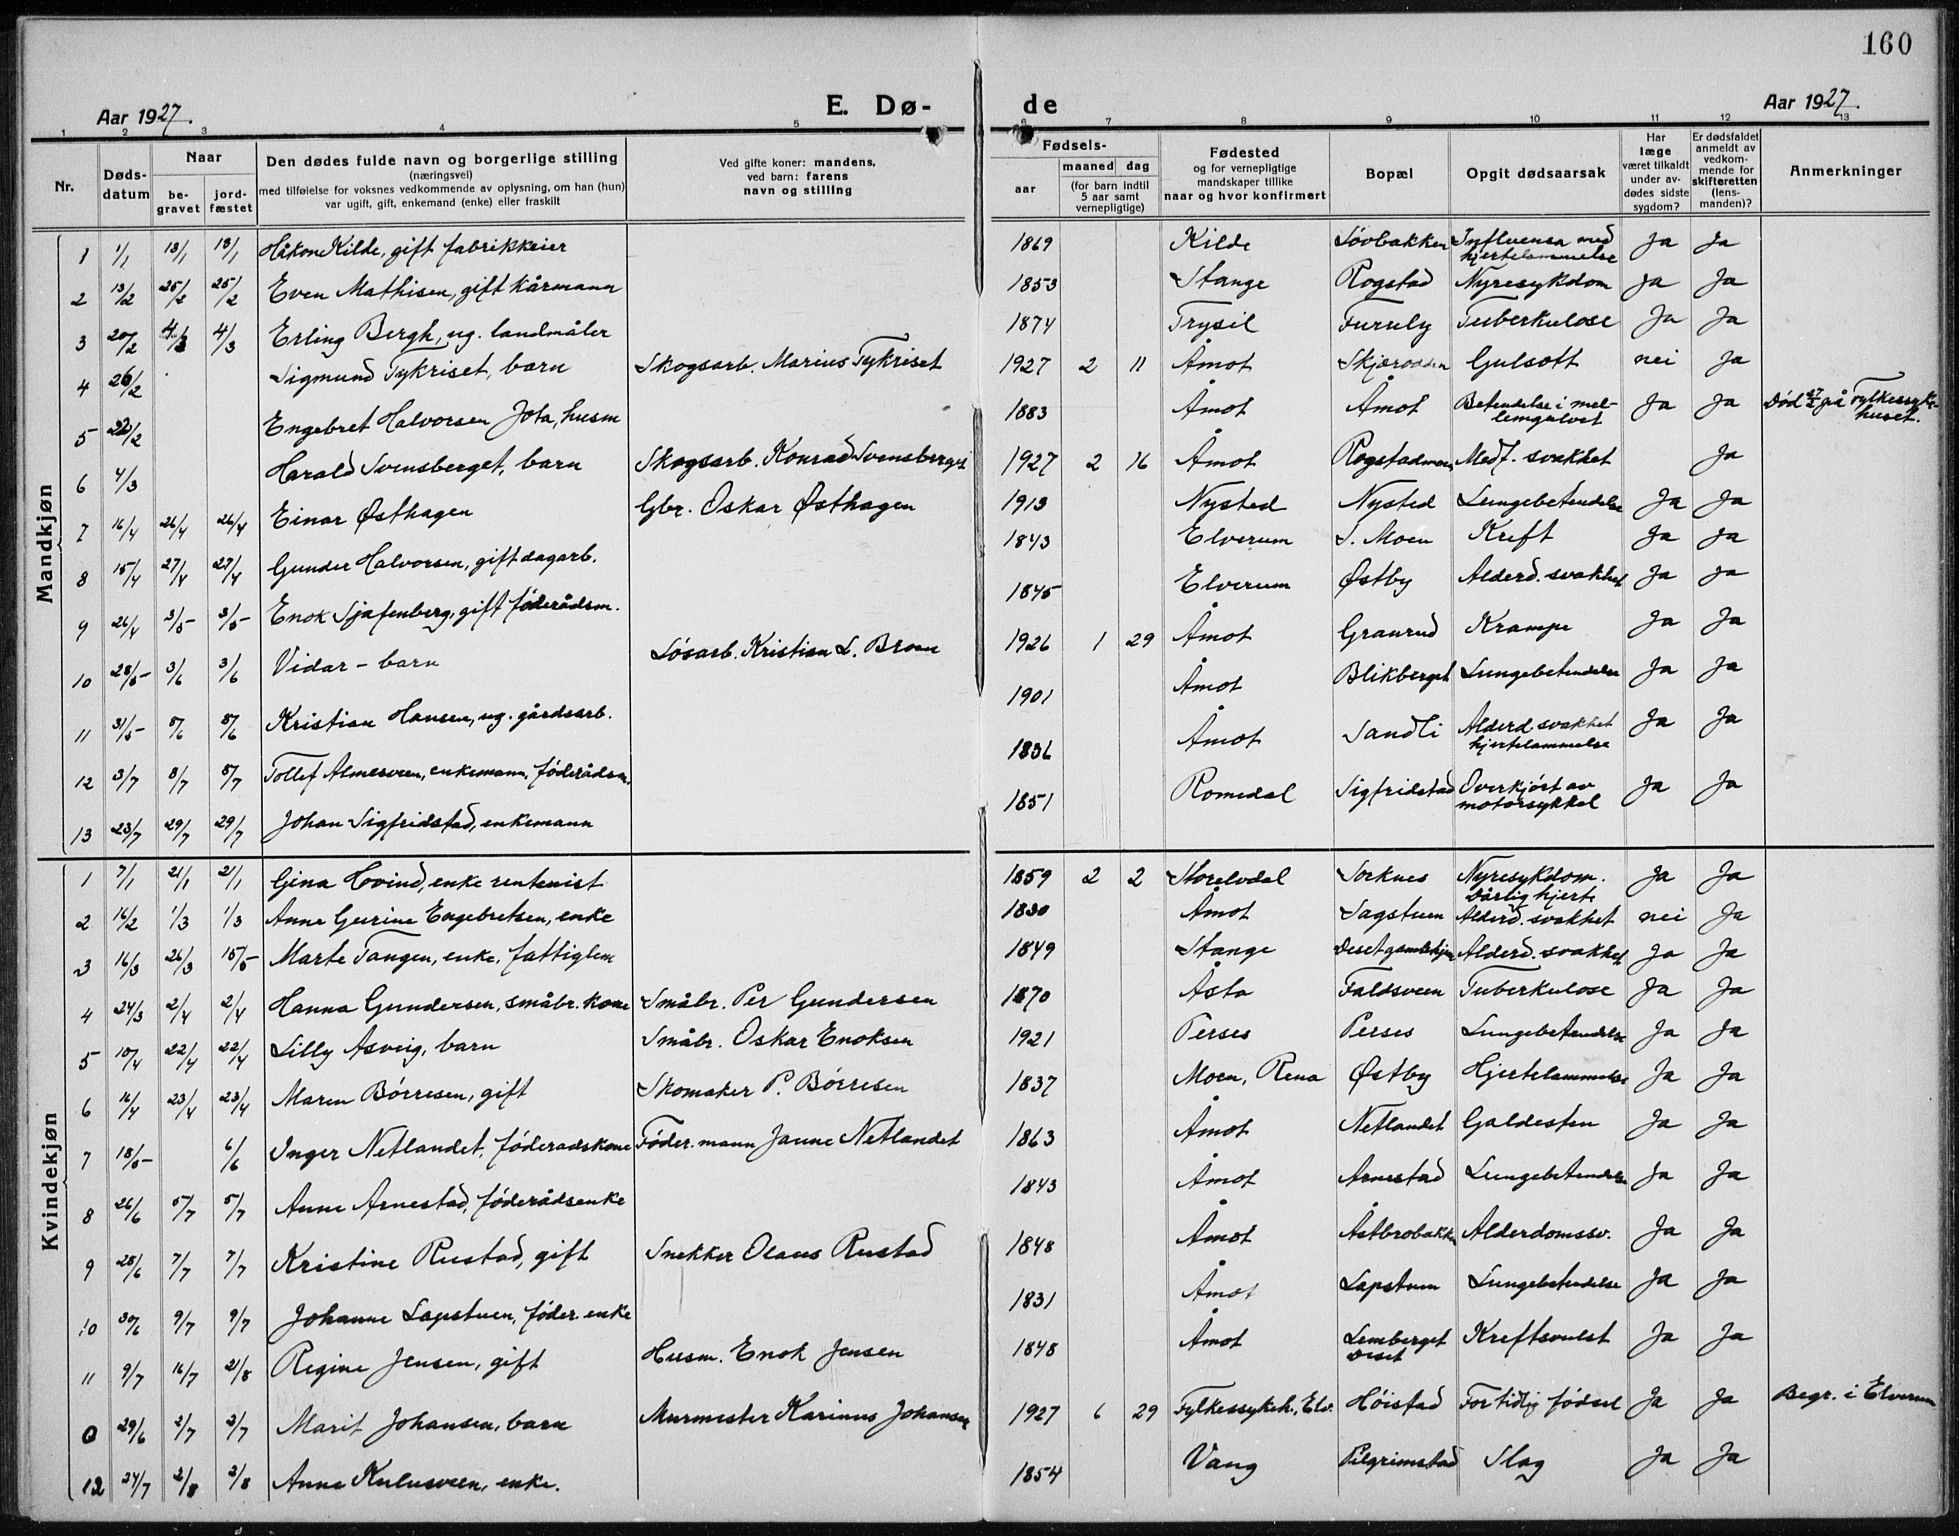 160
Aar 1927.
E. Dø-
de
Aar 1927.
1 2 3 4 5 6 7 8 9 10 11 12 13
Nr.
Døds-
datum
Naar
be-
gravet
jord-
fæstet
Den dødes fulde navn og borgerlige stilling
(næringsvei)
med tilføielse for voksnes vedkommende av oplysning, om han (hun)
var ugift, gift, enkemand (enke) eller fraskilt
Ved gifte koner: mandens,
ved barn: farens
navn og stilling
Fødsels-
aar
maaned dag
(for barn indtil
5 aar samt
vernepligtige)
Fødested
og for vernepligtige
mandskaper tillike
naar og hvor konfirmert
Bopæl
Opgit dødsaarsak
Har
læge
været tilkaldt
under av-
dødes sidste
sygdom?
Er dødsfaldet
anmeldt av
vedkom-
mende for
skifteretten
(lens-
manden)?
Anmerkninger
Mandkjøn
1 1/1 13/1 13/1 Håkon Kilde, gift fabrikkeier 1869 Kilde Løvbakken Influensa med hjertelammelse Ja Ja
2 13/2 25/2 25/2 Even Mathisen, gift kårmann 1853 Stange Rogstad Nyresykdom Ja Ja
3 20/2 4/3 4/3 Erling Bergh, ug. landmåler 1874 Trysil Furuly Tuberkulose Ja Ja
4 26/2 Sigmund Tykriset, barn Skogsarb. Marius Tykriset 1927 2 11 Åmot Gulsott nei Ja
5 22/2 Engebret Halvorsen Jota, husm 1883 Åmot Åmot Betendelse i mel-lemgulvet Ja Ja Død på Fylkessyke-huset.
6 4/3 Harald Svensberget, barn Skogsarb. Konrad Svensberget 1927 2 16 Åmot Rogstadmoen Medf. svakhet Ja
7 16/4 26/4 26/4 Einar Østhagen Gbr. Oskar Østhagen 1913 Nysted Nysted Lungebetendelse Ja Ja
8 15/4 27/4 27/4 Gunder Halvorsen, gift dagarb. 1843 Elverum S. Moen Kreft Ja Ja
9 26/4 3/5 3/5 Enok Sjafenberg, gift føderådsm. 1845 Elverum Østby Alderd. svakhet Ja Ja
10 28/5 3/6 3/6 Vidar - barn Løsarb. Kristian L. Broen 1926 1 29 Åmot Graurud Krampe Ja Ja
11 31/5 8/6 8/6 Kristian Hansen, ug. gårdsarb. 1901 Åmot Blikberget Lungebetendelse Ja Ja
12 3/7 8/7 8/7 Tollef Almesveen, enkemann, føderådsm. 1836 Åmot Sandli Alderd svakhet hjertelammelse Ja Ja
13 23/7 29/7 29/7 Johan Sigfridstad, enkemann 1851 Romedal Sigfridstad Overkjørt av motorsykkel Ja Ja
Kvindekjøn
1 7/1 21/1 21/1 Gina Hovind, enke rentenist 1859 2 2 Storelvdal Sorknes Nyresykdom. dårlig hjerte Ja Ja
2 16/2 1/3 1/3 Anne Gurine Engebretsen, enke 1830 Åmot Sagstuen Alderd. svakhet nei Ja
3 16/3 26/3 15/5 Marte Tangen, enke, fattiglem 1849 Stange Deset gamlehjem Alderd. svakhet Ja Ja
4 24/3 2/4 2/4 Hanna Gundersen, småbr. kone Småbr. Per Gundersen 1870 Åsta Faldsveen Tuberkulose Ja Ja
5 10/4 22/4 22/4 Lilly Asveig, barn Småbr. Oskar Enoksen 1921 Perses Perses Lungebetendelse Ja Ja
6 16/4 23/4 23/4 Maren Børresen, gift Skomaker P. Børresen 1837 Moen, Rena Østby Hjertelammelse Ja Ja
7 18/5 6/6 Inger Netlandet, føderadskone Føder. mann Janne Netlandet 1863 Åmot Netlandet Galdesten Ja Ja
8 26/6 5/7 5/7 Anne Arnestad, føderådsenke 1843 Åmot Arnestad Lungebetendelse Ja Ja
9 28/6 7/7 7/7 Kristine Rustad, gift Snekker Olaus Rustad 1848 Åmot Åstbrobakken Alderdomssv. Ja Ja
10 30/6 9/7 9/7 Johanne Lapstuen, føder. enke 1831 Åmot Lapstuen Lungebetendelse Ja Ja
11 9/7 16/7 21/8 Regine Jensen, gift Husm. Enok Jensen 1848 Åmot Lemberget Deset Kreftsvulst Ja Ja
0 29/6 2/7 2/7 Marit Johansen, barn Murmester Karinus Johansen 1927 6 29 Fylkessykeh., Elv. Høistad For tidlig fødsel Ja Ja Begr. i Elverum
12 24/7 2/8 2/8 Anne Kulusveen, enke. 1854 Vang Pilgrimstad Slag Ja Ja